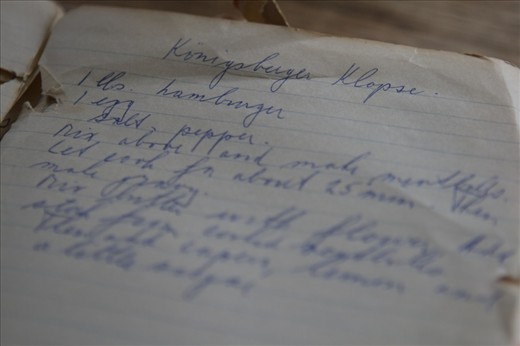 Königsberger Klopse.
1 lbs. hamburger
1 egg
Salt, pepper.
Mix above and make meatballs.
Let cook for about 25 min Then
make gravy.
Mix with flour. Add
stock from cooked meatballs
Then add capers, lemon and
a little sugar